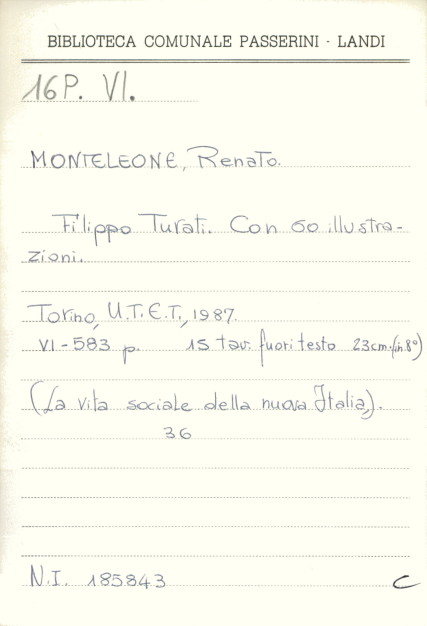 BIBLIOTECA COMUNALE PASSERINI - LANDI
16 P. VI.
MONTELEONE, Renato.
Filippo Turati. Con 60 illustra-
zioni.
Torino, U.T.E.T., 1987.
VI - 583 p. 15 tav. fuori testo 23cm.(in 8°)
(La vita sociale della nuova Italia,).
36
N.I. 185843 C